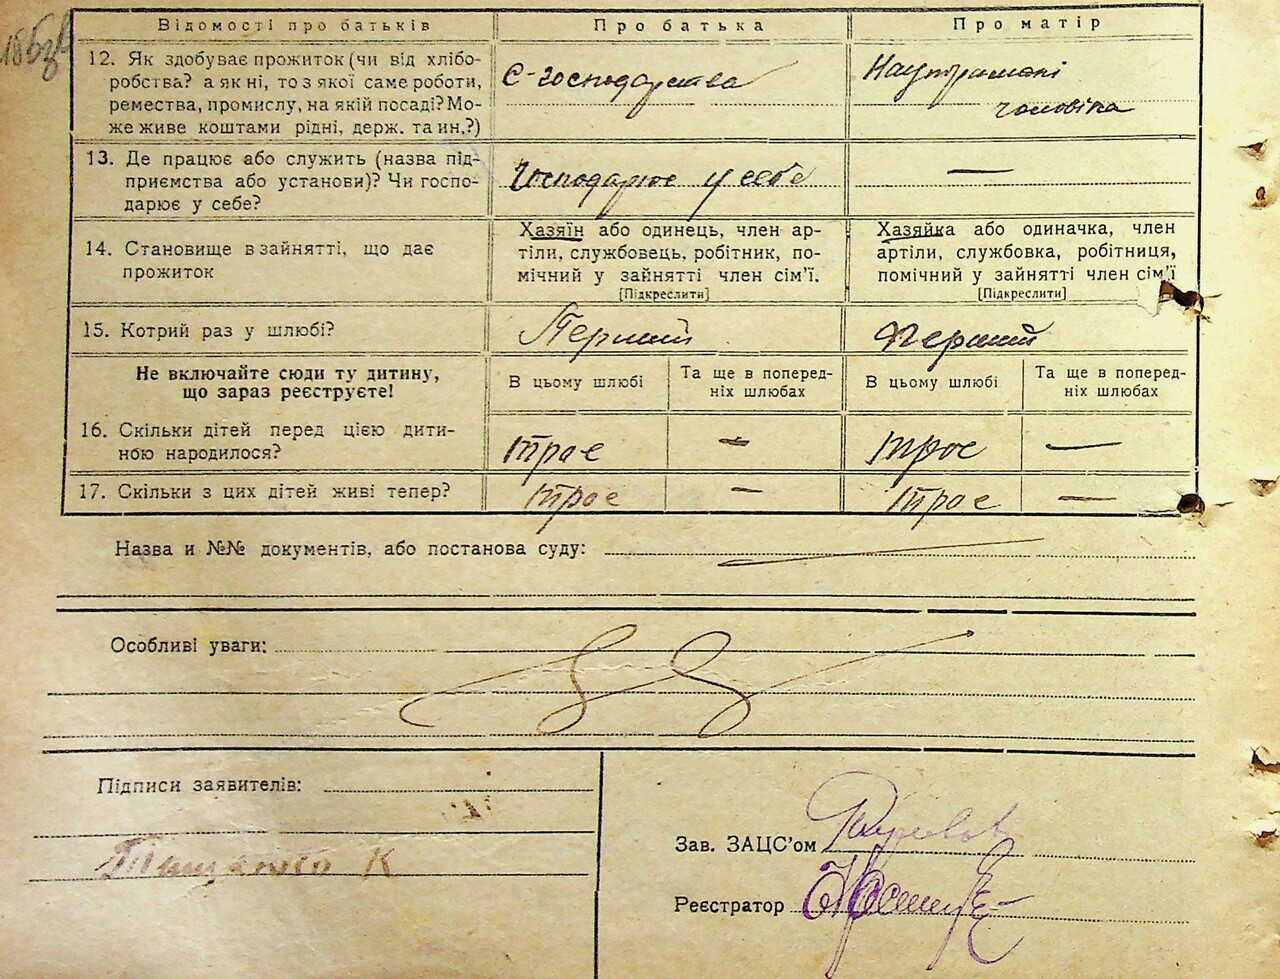 Відомості про батьків
Про батька
Про матір
12. Як здобуває прожиток (чи від хлібо-
робства? а як ні, то з якої саме роботи,
ремества, промислу, на якій посаді? Мо-
же живе коштами рідні, держ. та ин.?)
С-господарства
На утриманні
чоловіка
13. Де працює або служить (назва під-
приємства або установи)? Чи госпо-
дарює у себе?
Господарює у себе
—
14. Становище в зайнятті, що дає
прожиток
Хазяїн або одинець, член ар-
тіли, службовець, робітник, по-
мічний у зайнятті член сім'ї.
[Підкреслити]
Хазяйка або одиначка, член
артіли, службовка, робітниця,
помічний у зайнятті член сім'ї
[Підкреслити]
15. Котрий раз у шлюбі?
Перший
Перший
Не включайте сюди ту дитину,
що зараз реєструєте!
В цьому шлюбі
Та ще в поперед-
ніх шлюбах
В цьому шлюбі
Та ще в поперед-
ніх шлюбах
16. Скільки дітей перед цією дити-
ною народилося?
троє — троє —
17. Скільки з цих дітей живі тепер?
троє — троє —
Назва и №№ документів, або постанова суду:
Особливі уваги:
Підписи заявителів:
К
Зав. ЗАЦС'ом
Реєстратор